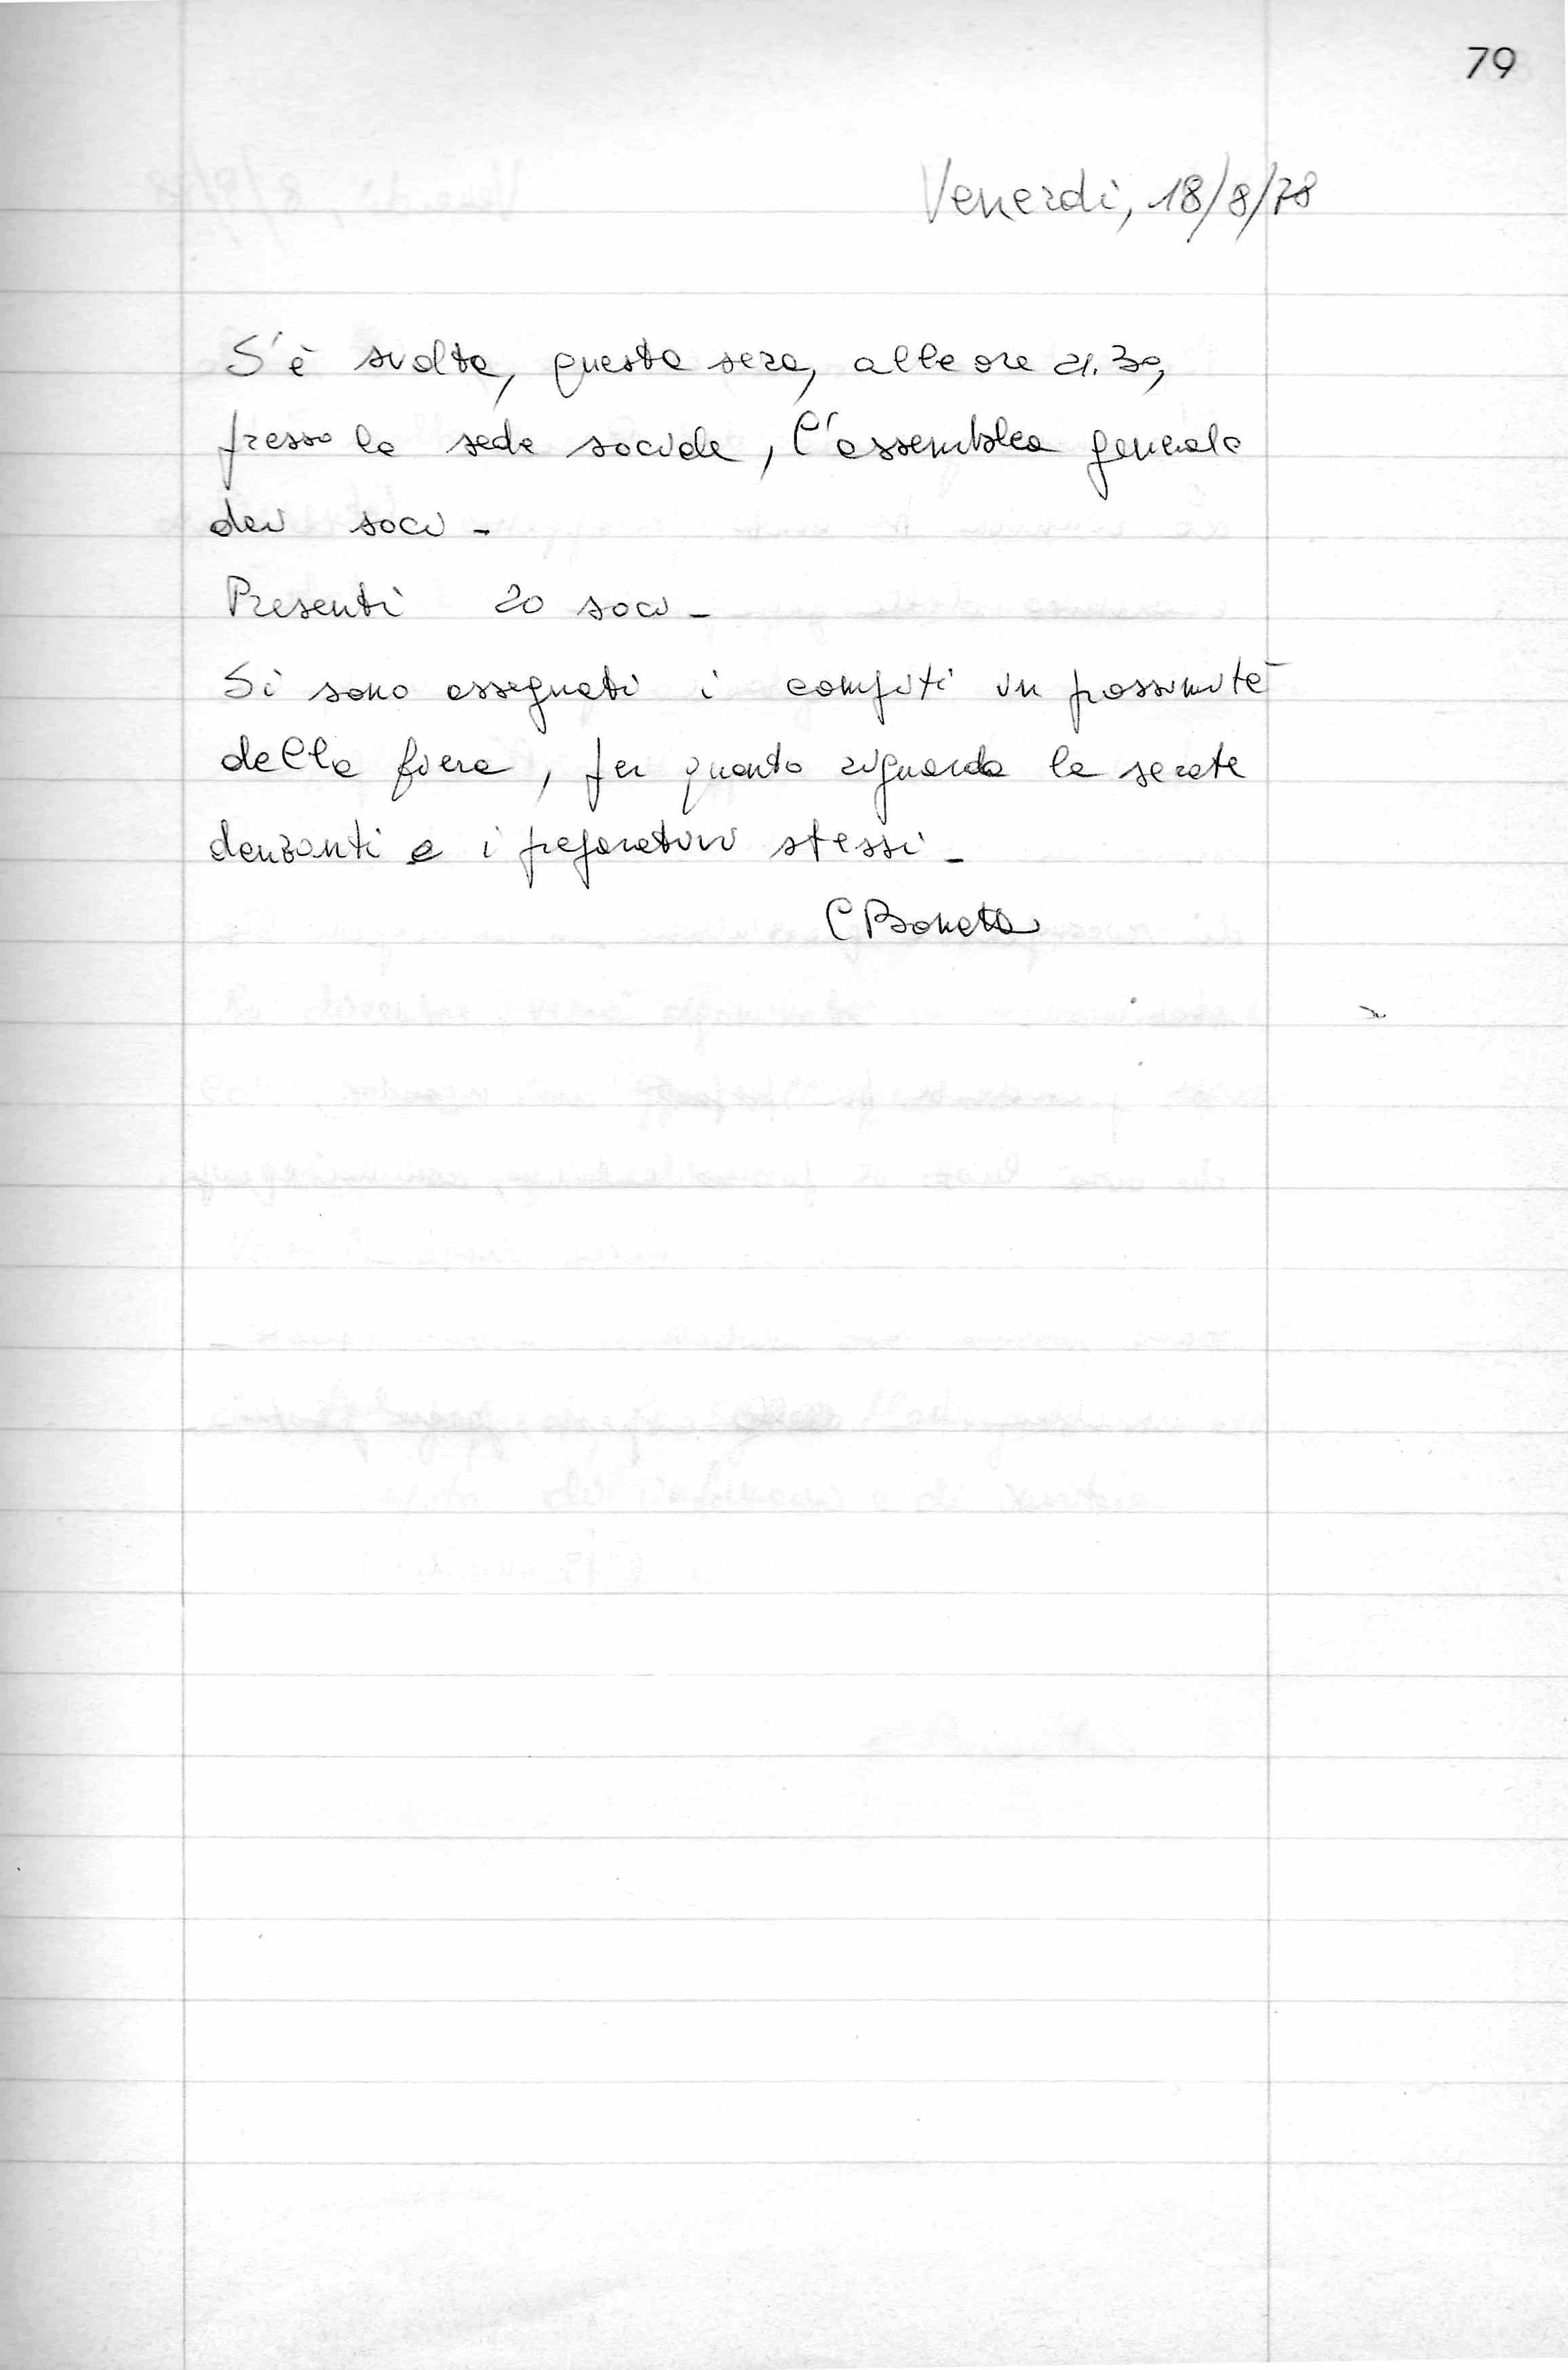 79
Venerdì, 18/8/78
S'è svolta, questa sera, alle ore 21.30,
presso la sede sociale, l'assemblea generale
dei soci -
Presenti 20 soci -
Si sono assegnati i compiti in prossimità
della fiera, per quanto riguarda le serate
danzanti e i preparativi stessi -
C Boneta